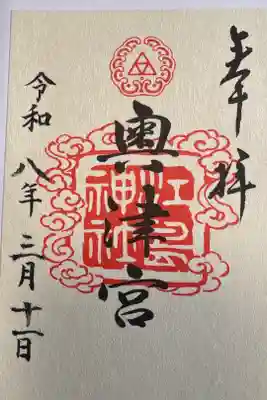 奉拝
奥津宮
江島神社
令和八年三月十一日